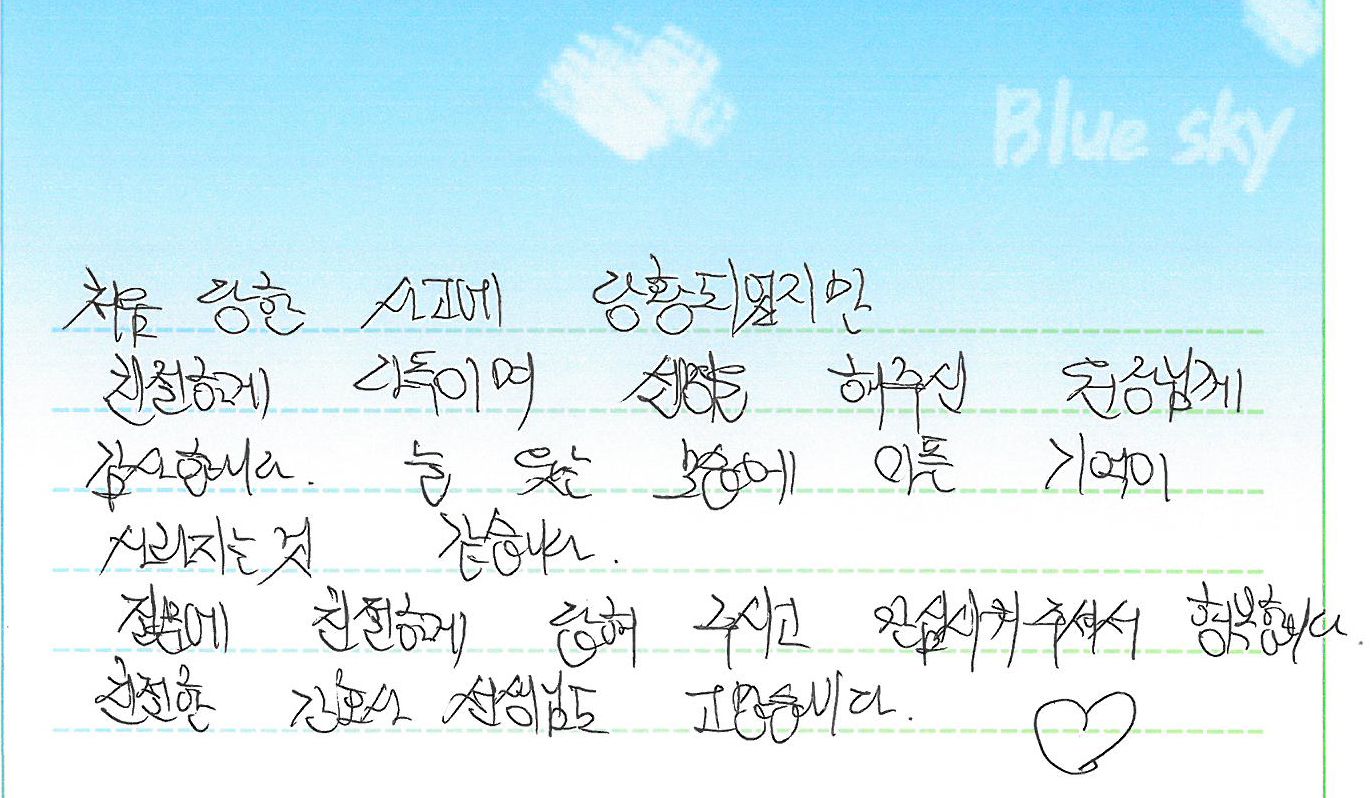 Blue sky
처음 당한 사고에 당황되었지만
친절하게 다독이며 해주신 원장님께
감사합니다. 늘 웃는 모습에 아픈 기억이
사라지는것 같습니다.
질문에 친절하게 답해 주시고 안심시켜주셔서 행복합니다.
친절한 간호사 선생님도 고맙습니다.